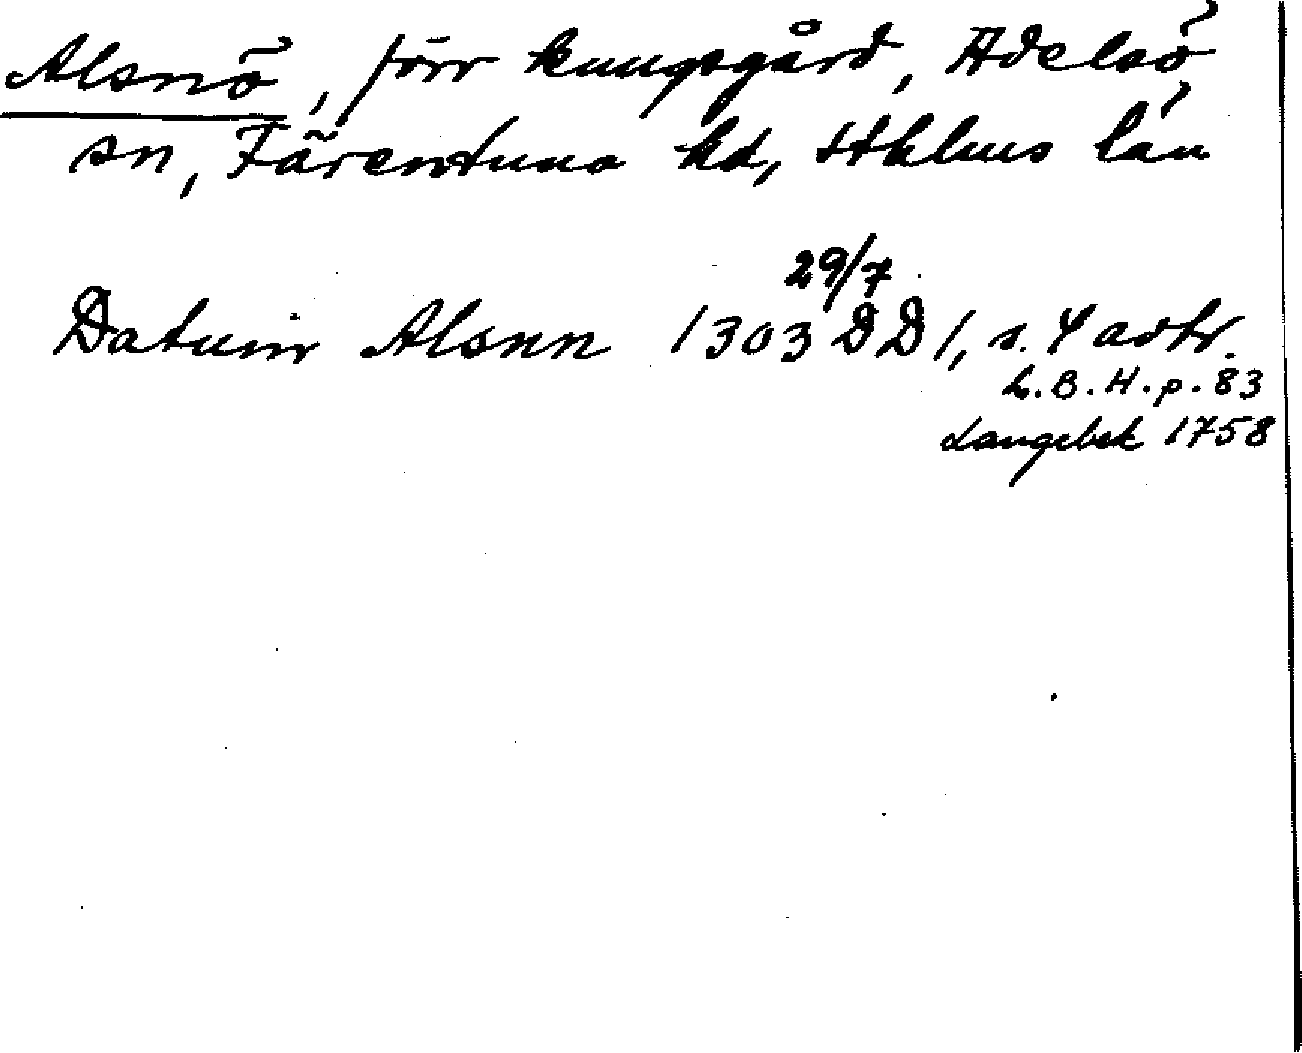 Alsnö, förr kungsgård, Adelsö
sn, Färentuna hd, Sthlms län
29/7
Datum Alsnn 1303 DD 1, s. 4 avtr.
L.B.H. p. 83
Langebek 1758